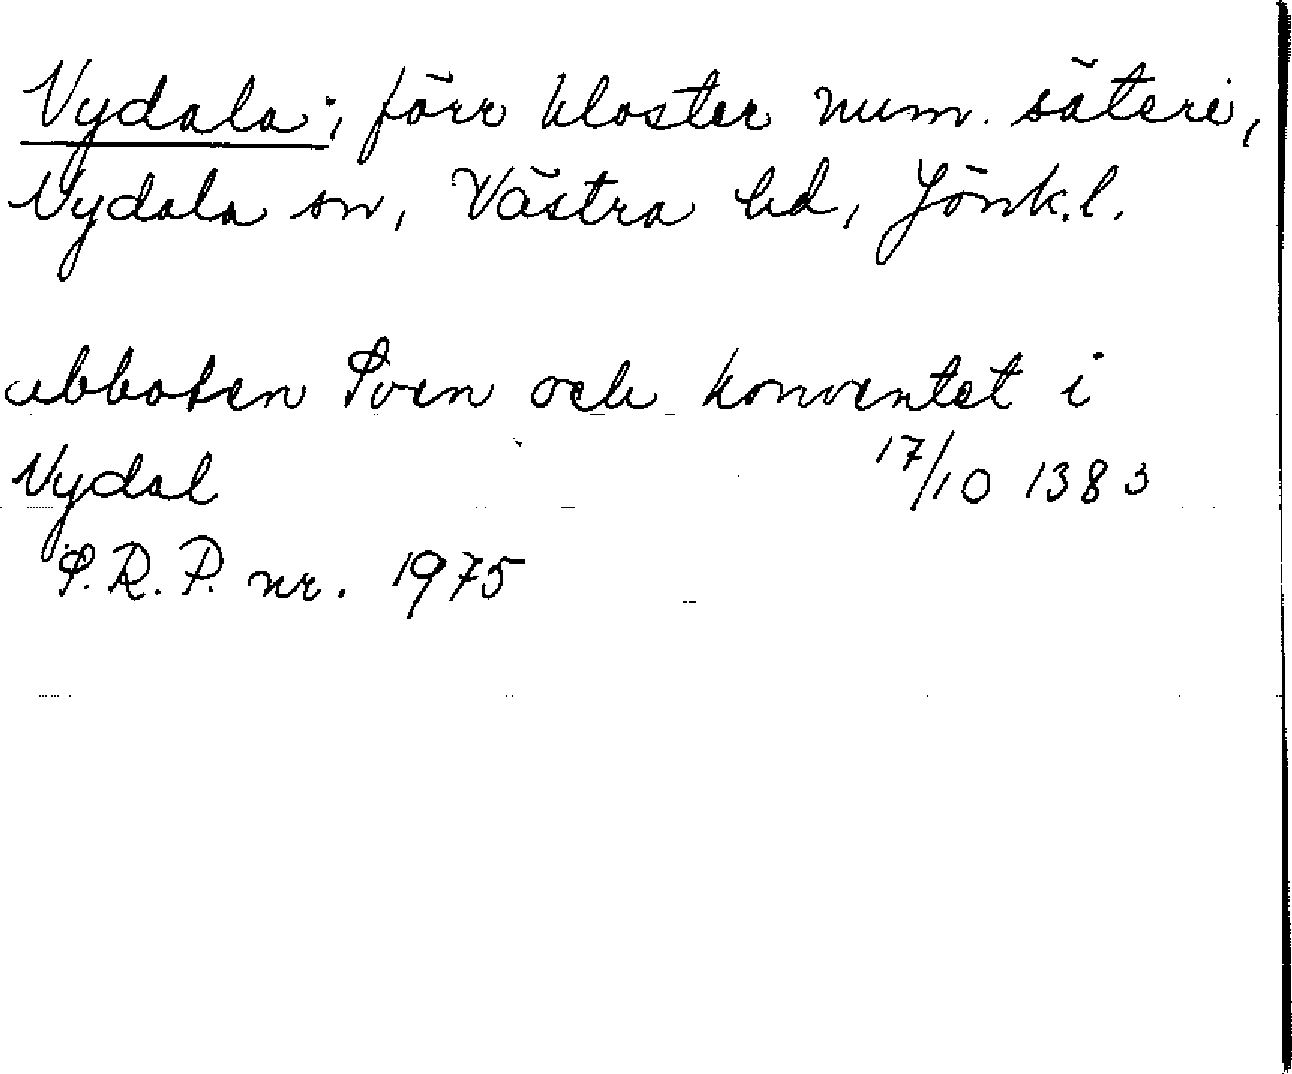 Nydala; förr kloster num. säteri,
Nydala sn, Västra hd, Jönk.l.
abboten Sven och konventet i
Nydal 17/10 1383
S.R.P. nr. 1975